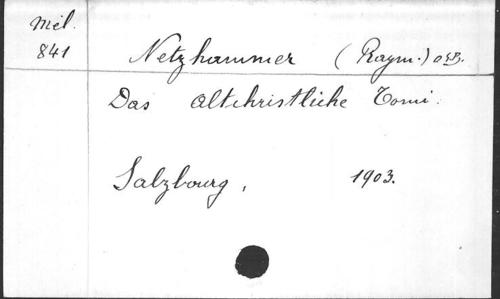 Mél.
841
Netzhammer (Raym.) O.S.B.
Das altchristliche Tomi.
Salzbourg, 1903.